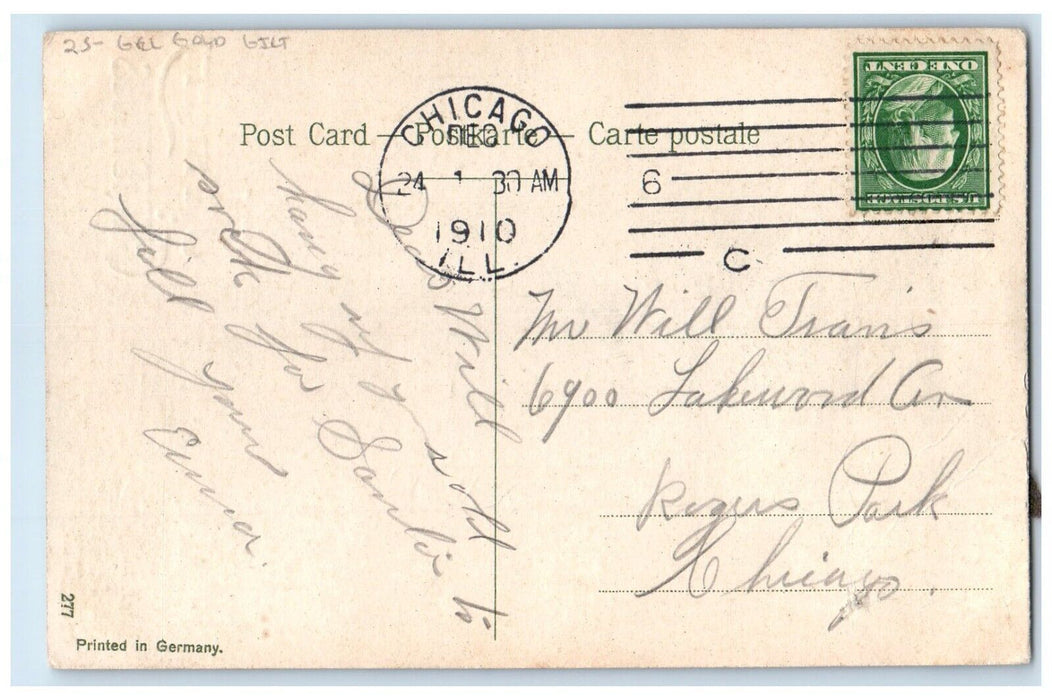 25- GEL GOLD GILT
Post Card — Postkarte — Carte postale
CHICAGO
DEC
24 1 30 AM
1910
ILL.
6
C
ONE CENT
U.S. POSTAGE
Dear Will
hang up y sock to
sock for Santa to
fill your
Anna.
Mr Will Travis
6900 Lakewood Av
Rogers Park
Chicago.
277
Printed in Germany.